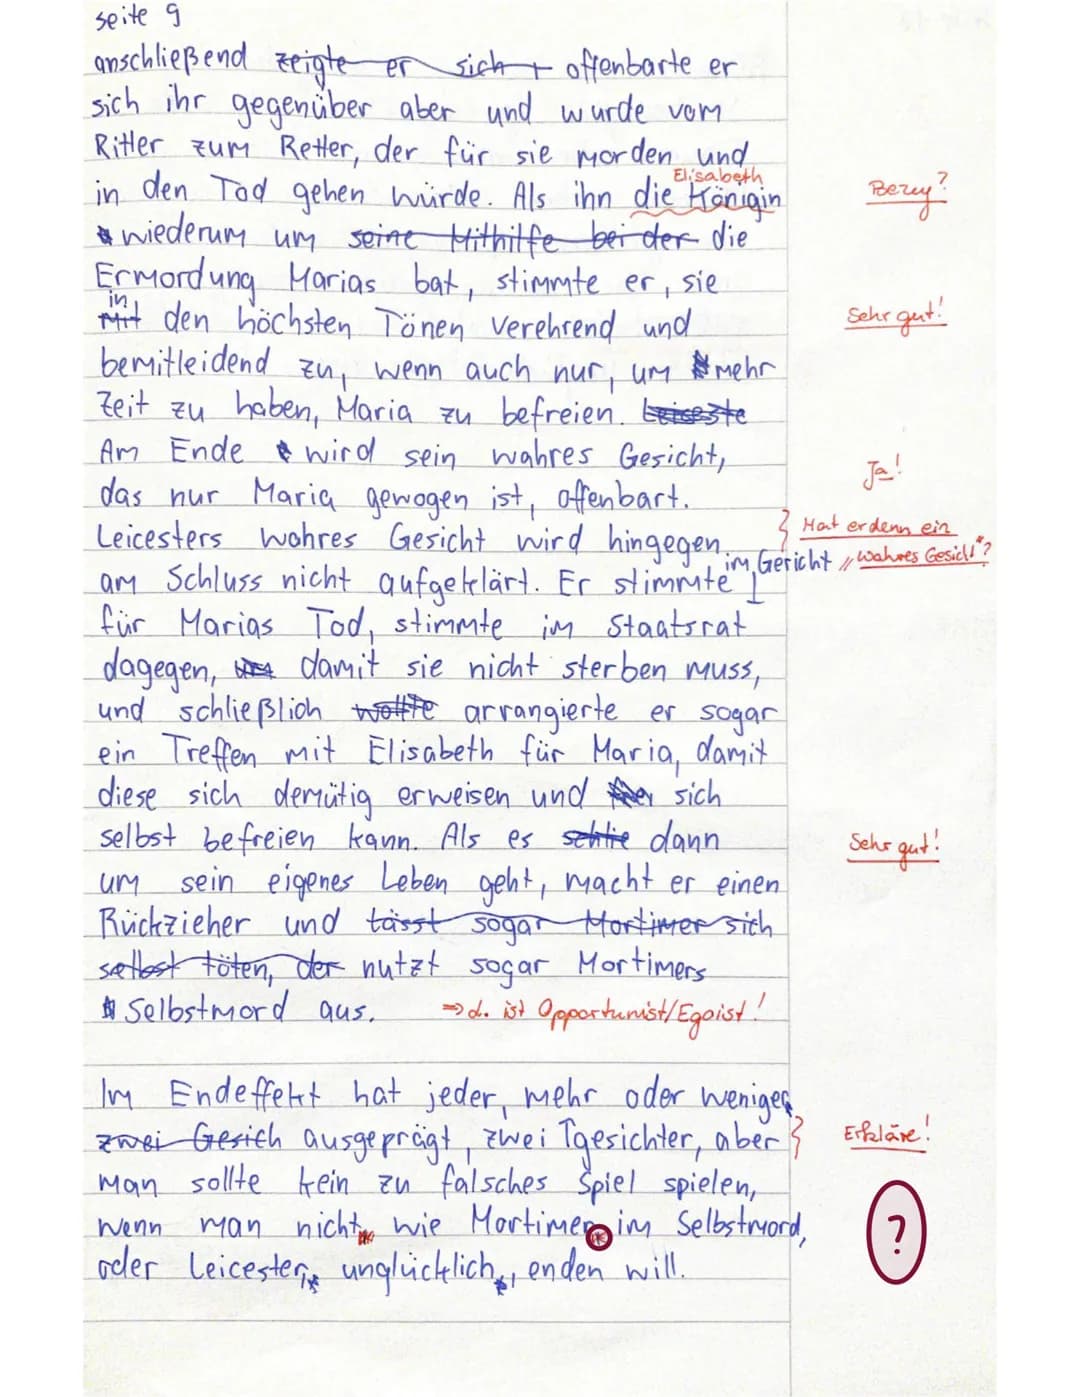 seite 9
anschließend zeigte er sich + offenbarte er
sich ihr gegenüber aber und wurde vom
Ritter zum Retter, der für sie morden und
Elisabeth
in den Tod gehen würde. Als ihn die Königin
Bezug?
wiederum um seine Mithilfe bei der die
Ermordung Marias bat, stimmte er, sie
in
mit den höchsten Tönen verehrend und
Sehr gut!
bemitleidend zu, wenn auch nur, um mehr
Zeit zu haben, Maria zu befreien. Leiceste
Am Ende wird sein wahres Gesicht,
Ja!
das nur Maria gewogen ist, offenbart.
Leicesters wahres Gesicht wird hingegen
Hat er denn ein
„wahres Gesicht"?
im Gericht
am Schluss nicht aufgeklärt. Er stimmte
für Marias Tod, stimmte im Staatsrat
dagegen, damit sie nicht sterben muss,
und schließlich wollte arrangierte er sogar
ein Treffen mit Elisabeth für Maria, damit
diese sich demütig erweisen und sich
selbst befreien kann. Als es schlie dann
Sehr gut!
um sein eigenes Leben geht, macht er einen
Rückzieher und lässt sogar Mortimer sich
selbst töten, der nutzt sogar Mortimers
Selbstmord aus.
⇒ d. ist Opportunist/Egoist!
Im Endeffekt hat jeder, mehr oder weniger
zwei Gesich ausgeprägt, zwei Tgesichter, aber
Erkläre!
man sollte kein zu falsches Spiel spielen,
wenn man nicht, wie Mortimer im Selbstmord,
?
oder Leicester, unglücklich, enden will.